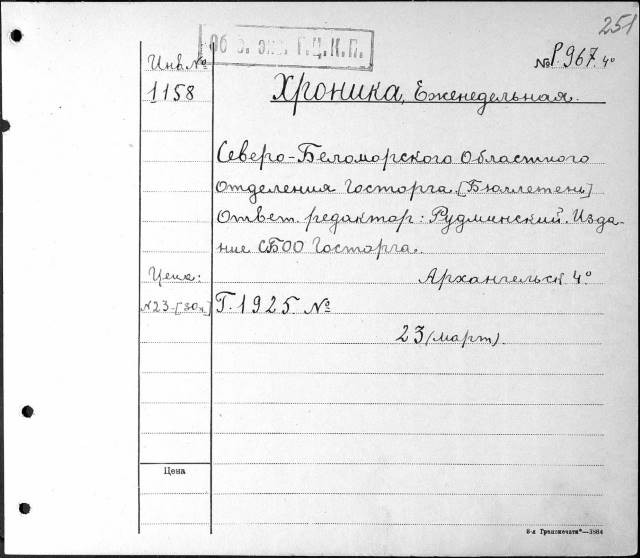 251
Об. экз. Г.Ц.К.П.
Инв. № 1158
№ Р. 967. 4°
Хроника, Еженедельная.
Северо-Беломорского Областного
отделения Госторга. [Бюллетень]
Ответ. редактор: Рудминский. Изда-
ние СБОО Госторга.
Архангельск 4°
Цена:
№23-[30к.]
Г. 1925. №
23 (март).
Цена
6-я Гранпечати"—3864